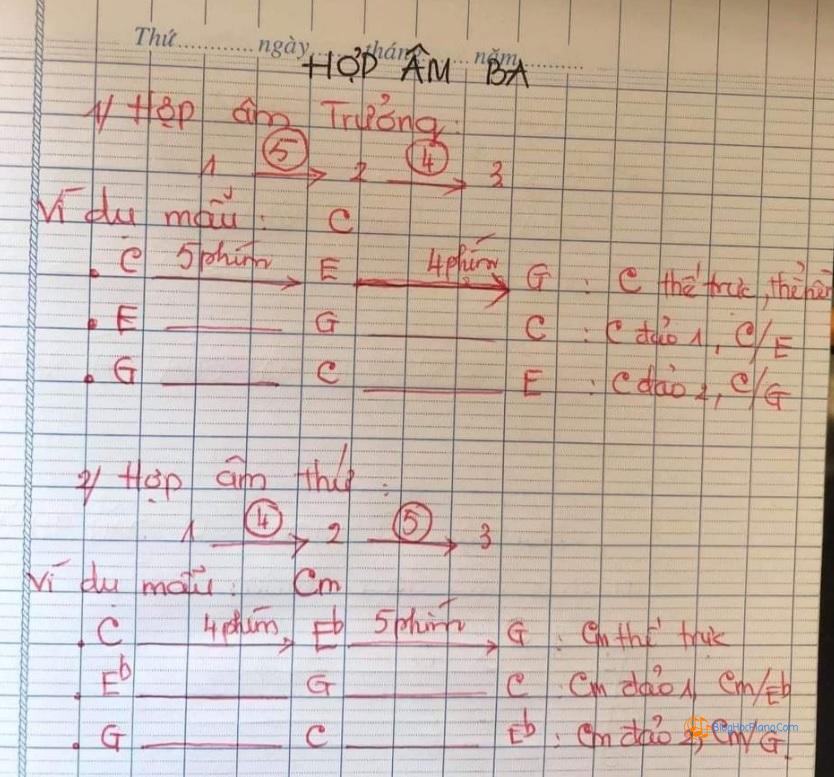 Thứ............ ngày..... tháng..... năm............
HỢP ÂM BA
1/ Hợp âm Trưởng:
1 ⑤ 2 ④ 3
Ví dụ mẫu: C
. C 5 phím E 4 phím G : C thế trực, thể nền
. E G C : C đảo 1, C/E
. G C E : C đảo 2, C/G
2/ Hợp âm thứ:
1 ④ 2 ⑤ 3
Ví dụ mẫu: Cm
. C 4 phím Eb 5 phím G : Cm thế trực
. Eb G C : Cm đảo 1, Cm/Eb
. G C Eb : Cm đảo 2, Cm/G.
BlogHocPiano.Com